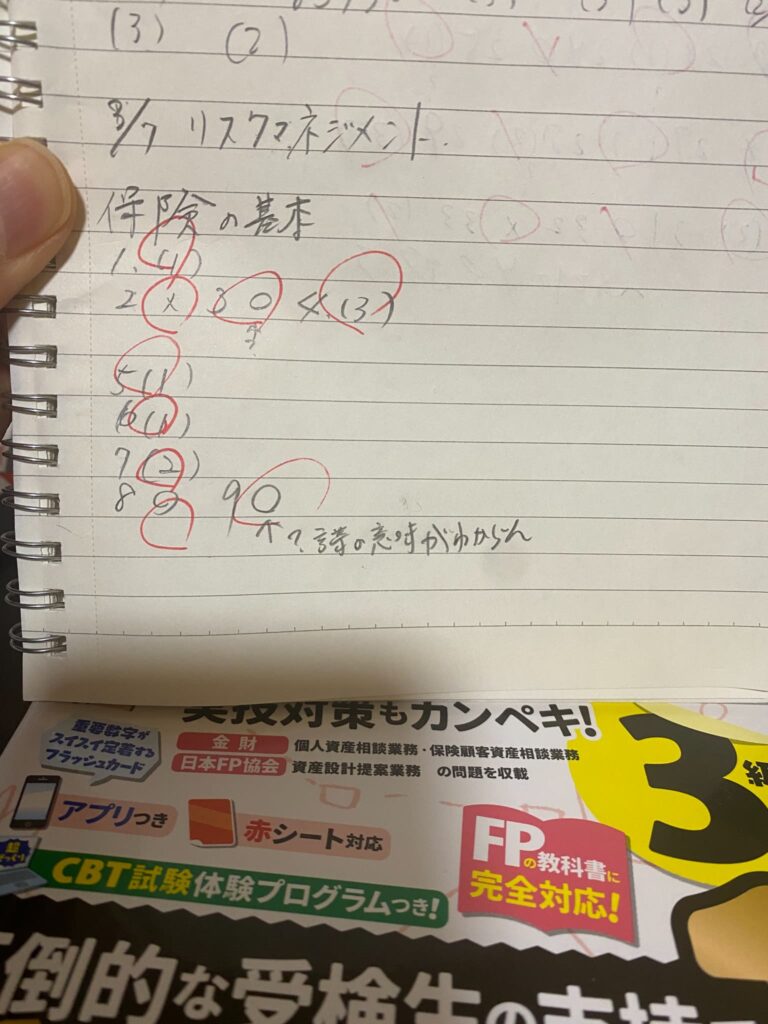 (3) (2)
3/7 リスクマネジメント
保険の基本
1. (1)
2 × 3 ○ 4. (3)
5 (1)
6 (1)
7 (2)
8 ○ 9 ○
↑?言葉の意味がわからん
実技対策もカンペキ!
重要数字が
スイスイ定着する
フラッシュカード
金財 個人資産相談業務・保険顧客資産相談業務
日本FP協会 資産設計提案業務 の問題を収載
3級
アプリつき
赤シート対応
FPの教科書に
完全対応!
CBT試験体験プログラムつき!
圧倒的な受検生の支持